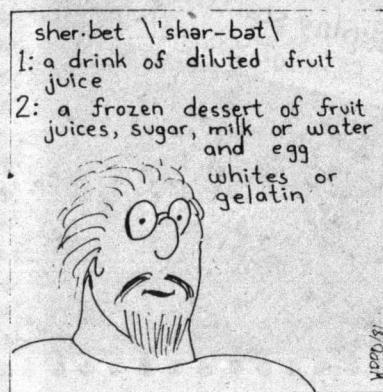 sher·bet \'shər-bət\
1: a drink of diluted fruit
juice
2: a frozen dessert of fruit
juices, sugar, milk or water
and egg
whites or
gelatin